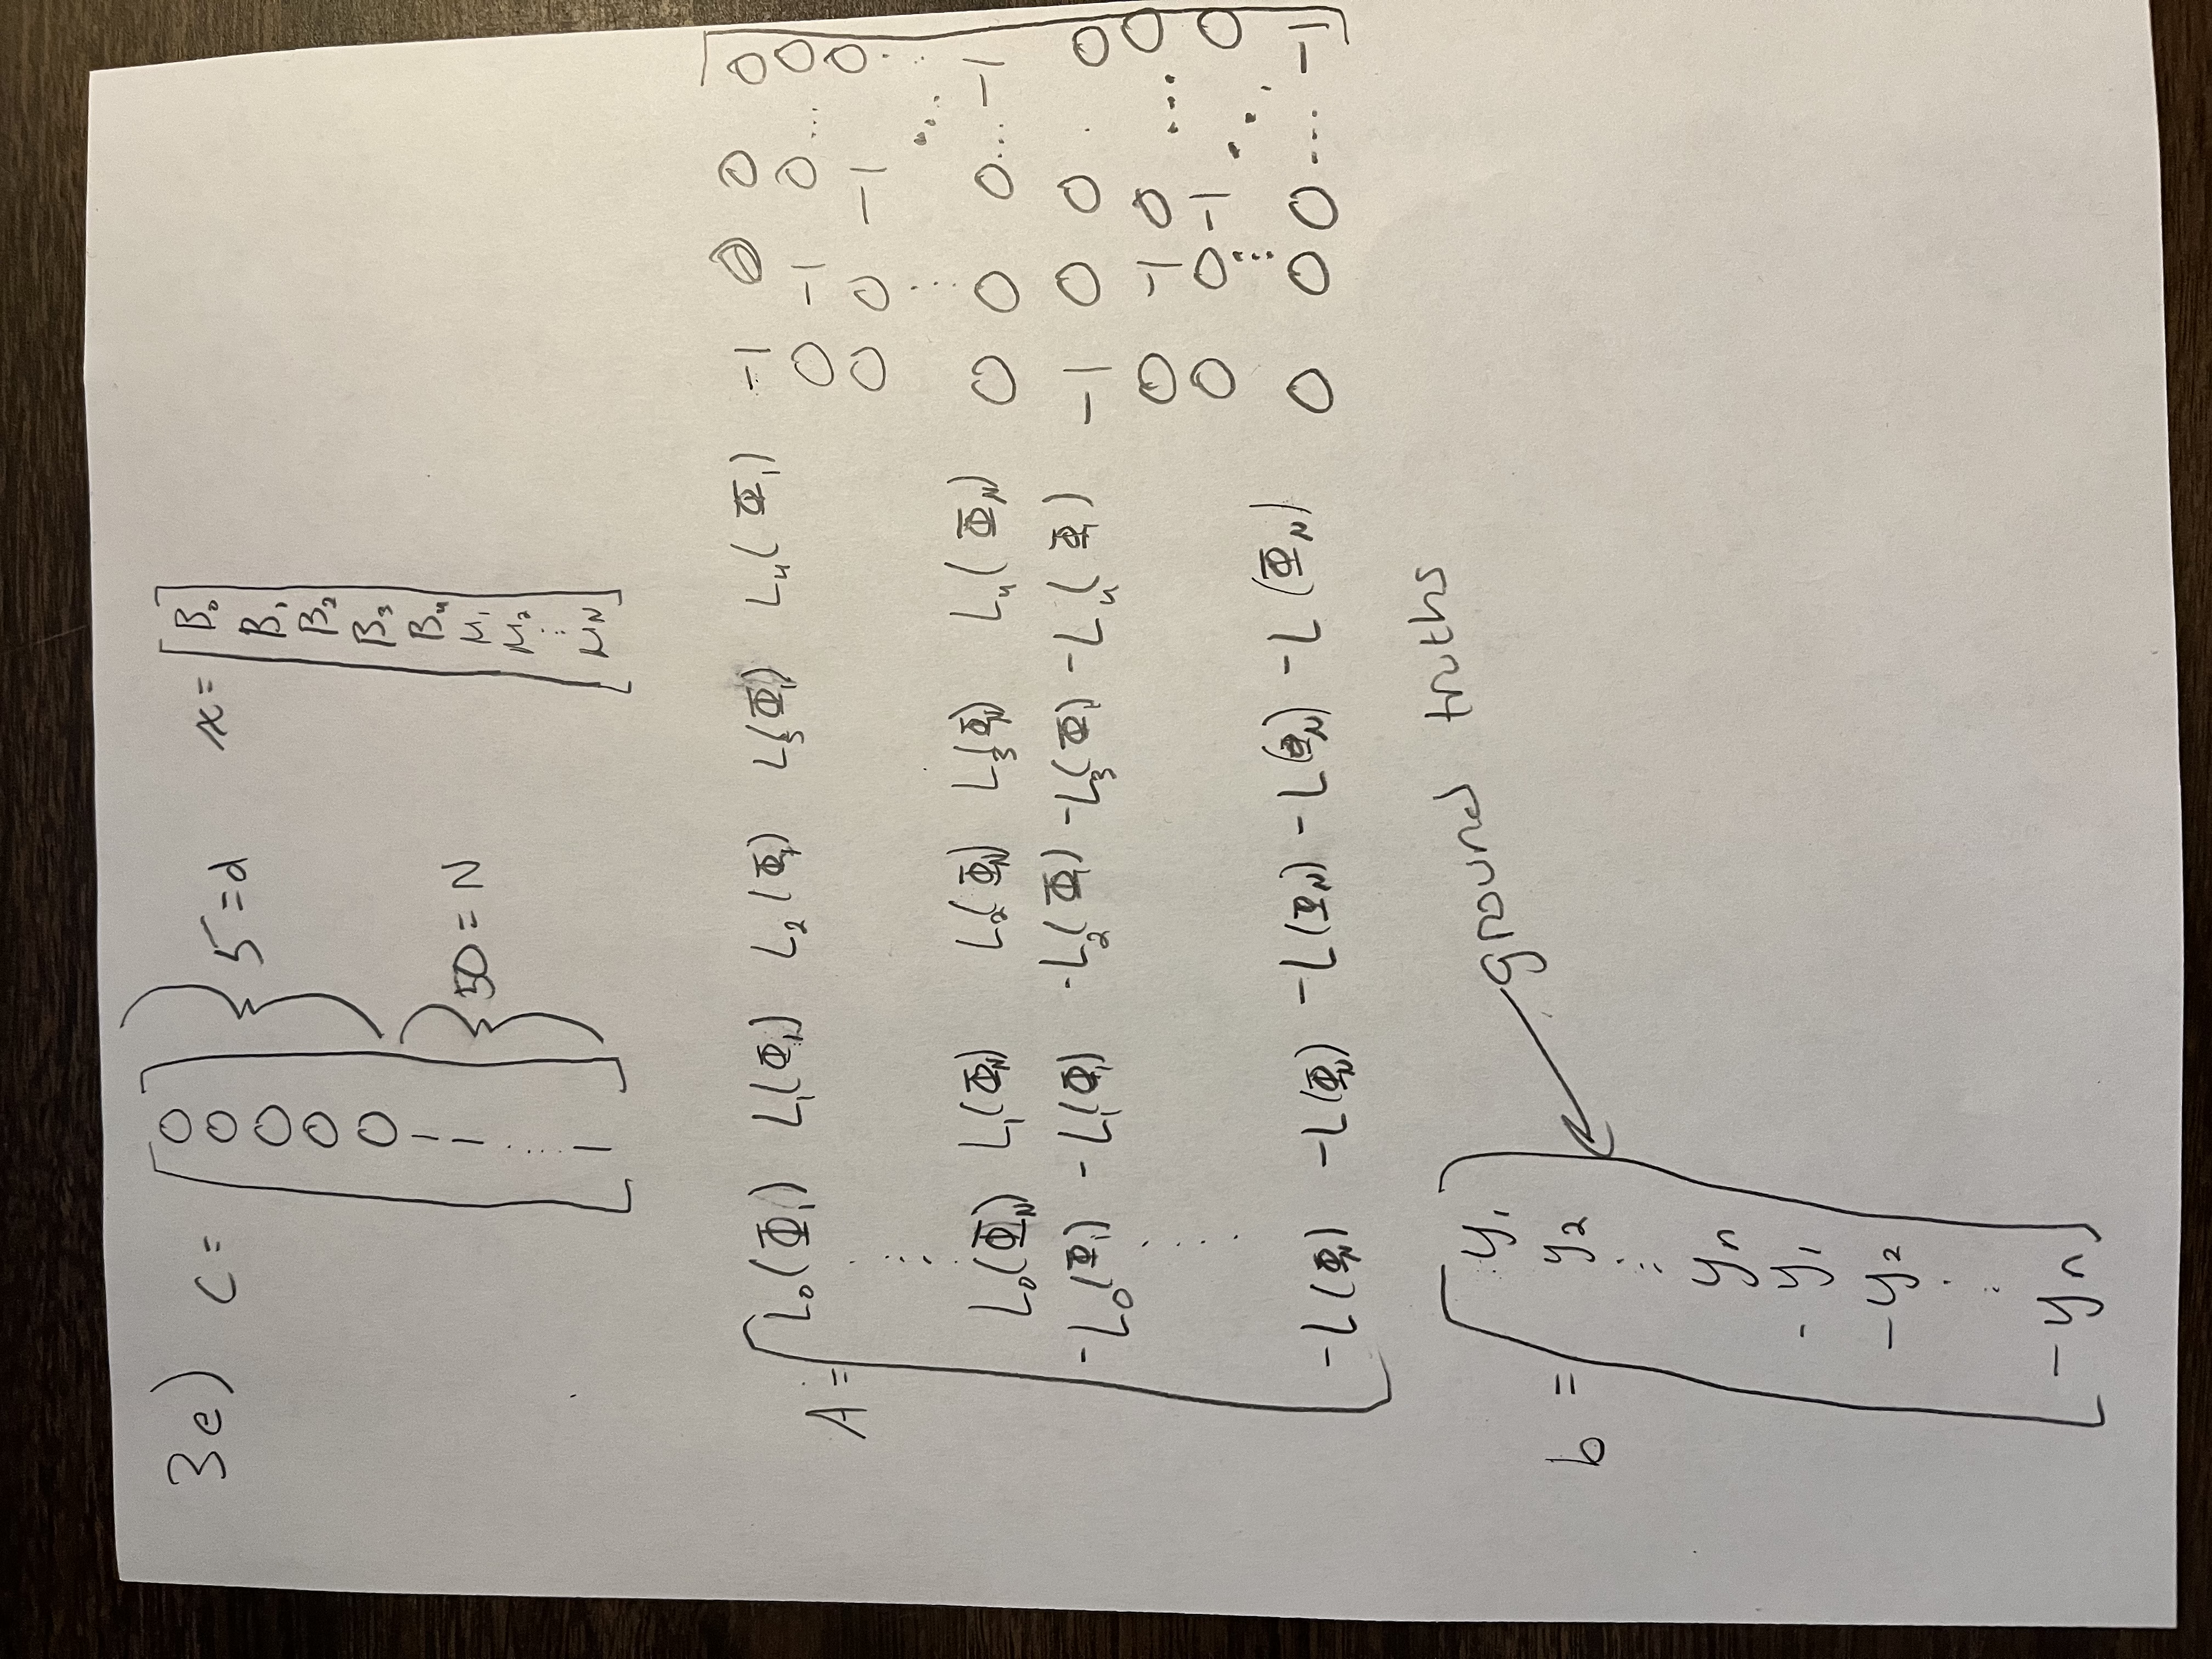 3e) c = [ 0 0 0 0 0 } 5 = d
1 1 ⋮ 1 ] } 50 = N
x = [ β₀ β₁ β₂ β₃ β₄ μ₁ μ₂ ⋮ μN ]
A = [ L₀(Φ₁) L₁(Φ₁) L₂(Φ₁) L₃(Φ₁) L₄(Φ₁) -1 0 0 0
0 -1 0 ... 0
0 0 -1 0
⋮ ⋮ ⋱ ⋮
L₀(ΦN) L₁(ΦN) L₂(ΦN) L₃(ΦN) L₄(ΦN) 0 0 0 ... -1
-L₀(Φ₁) -L₁(Φ₁) -L₂(Φ₁) -L₃(Φ₁) -L₄(Φ₁) -1 0 0 . 0
0 -1 0 ... 0
⋮ 0 0 -1 ⋱ 0
⋮
-L(ΦN) -L(ΦN) -L(ΦN) -L(ΦN) -L(ΦN) 0 0 0 ... -1 ]
b = [ y₁
y₂
⋮
yn
-y₁
-y₂
⋮
-yn ]
ground truths